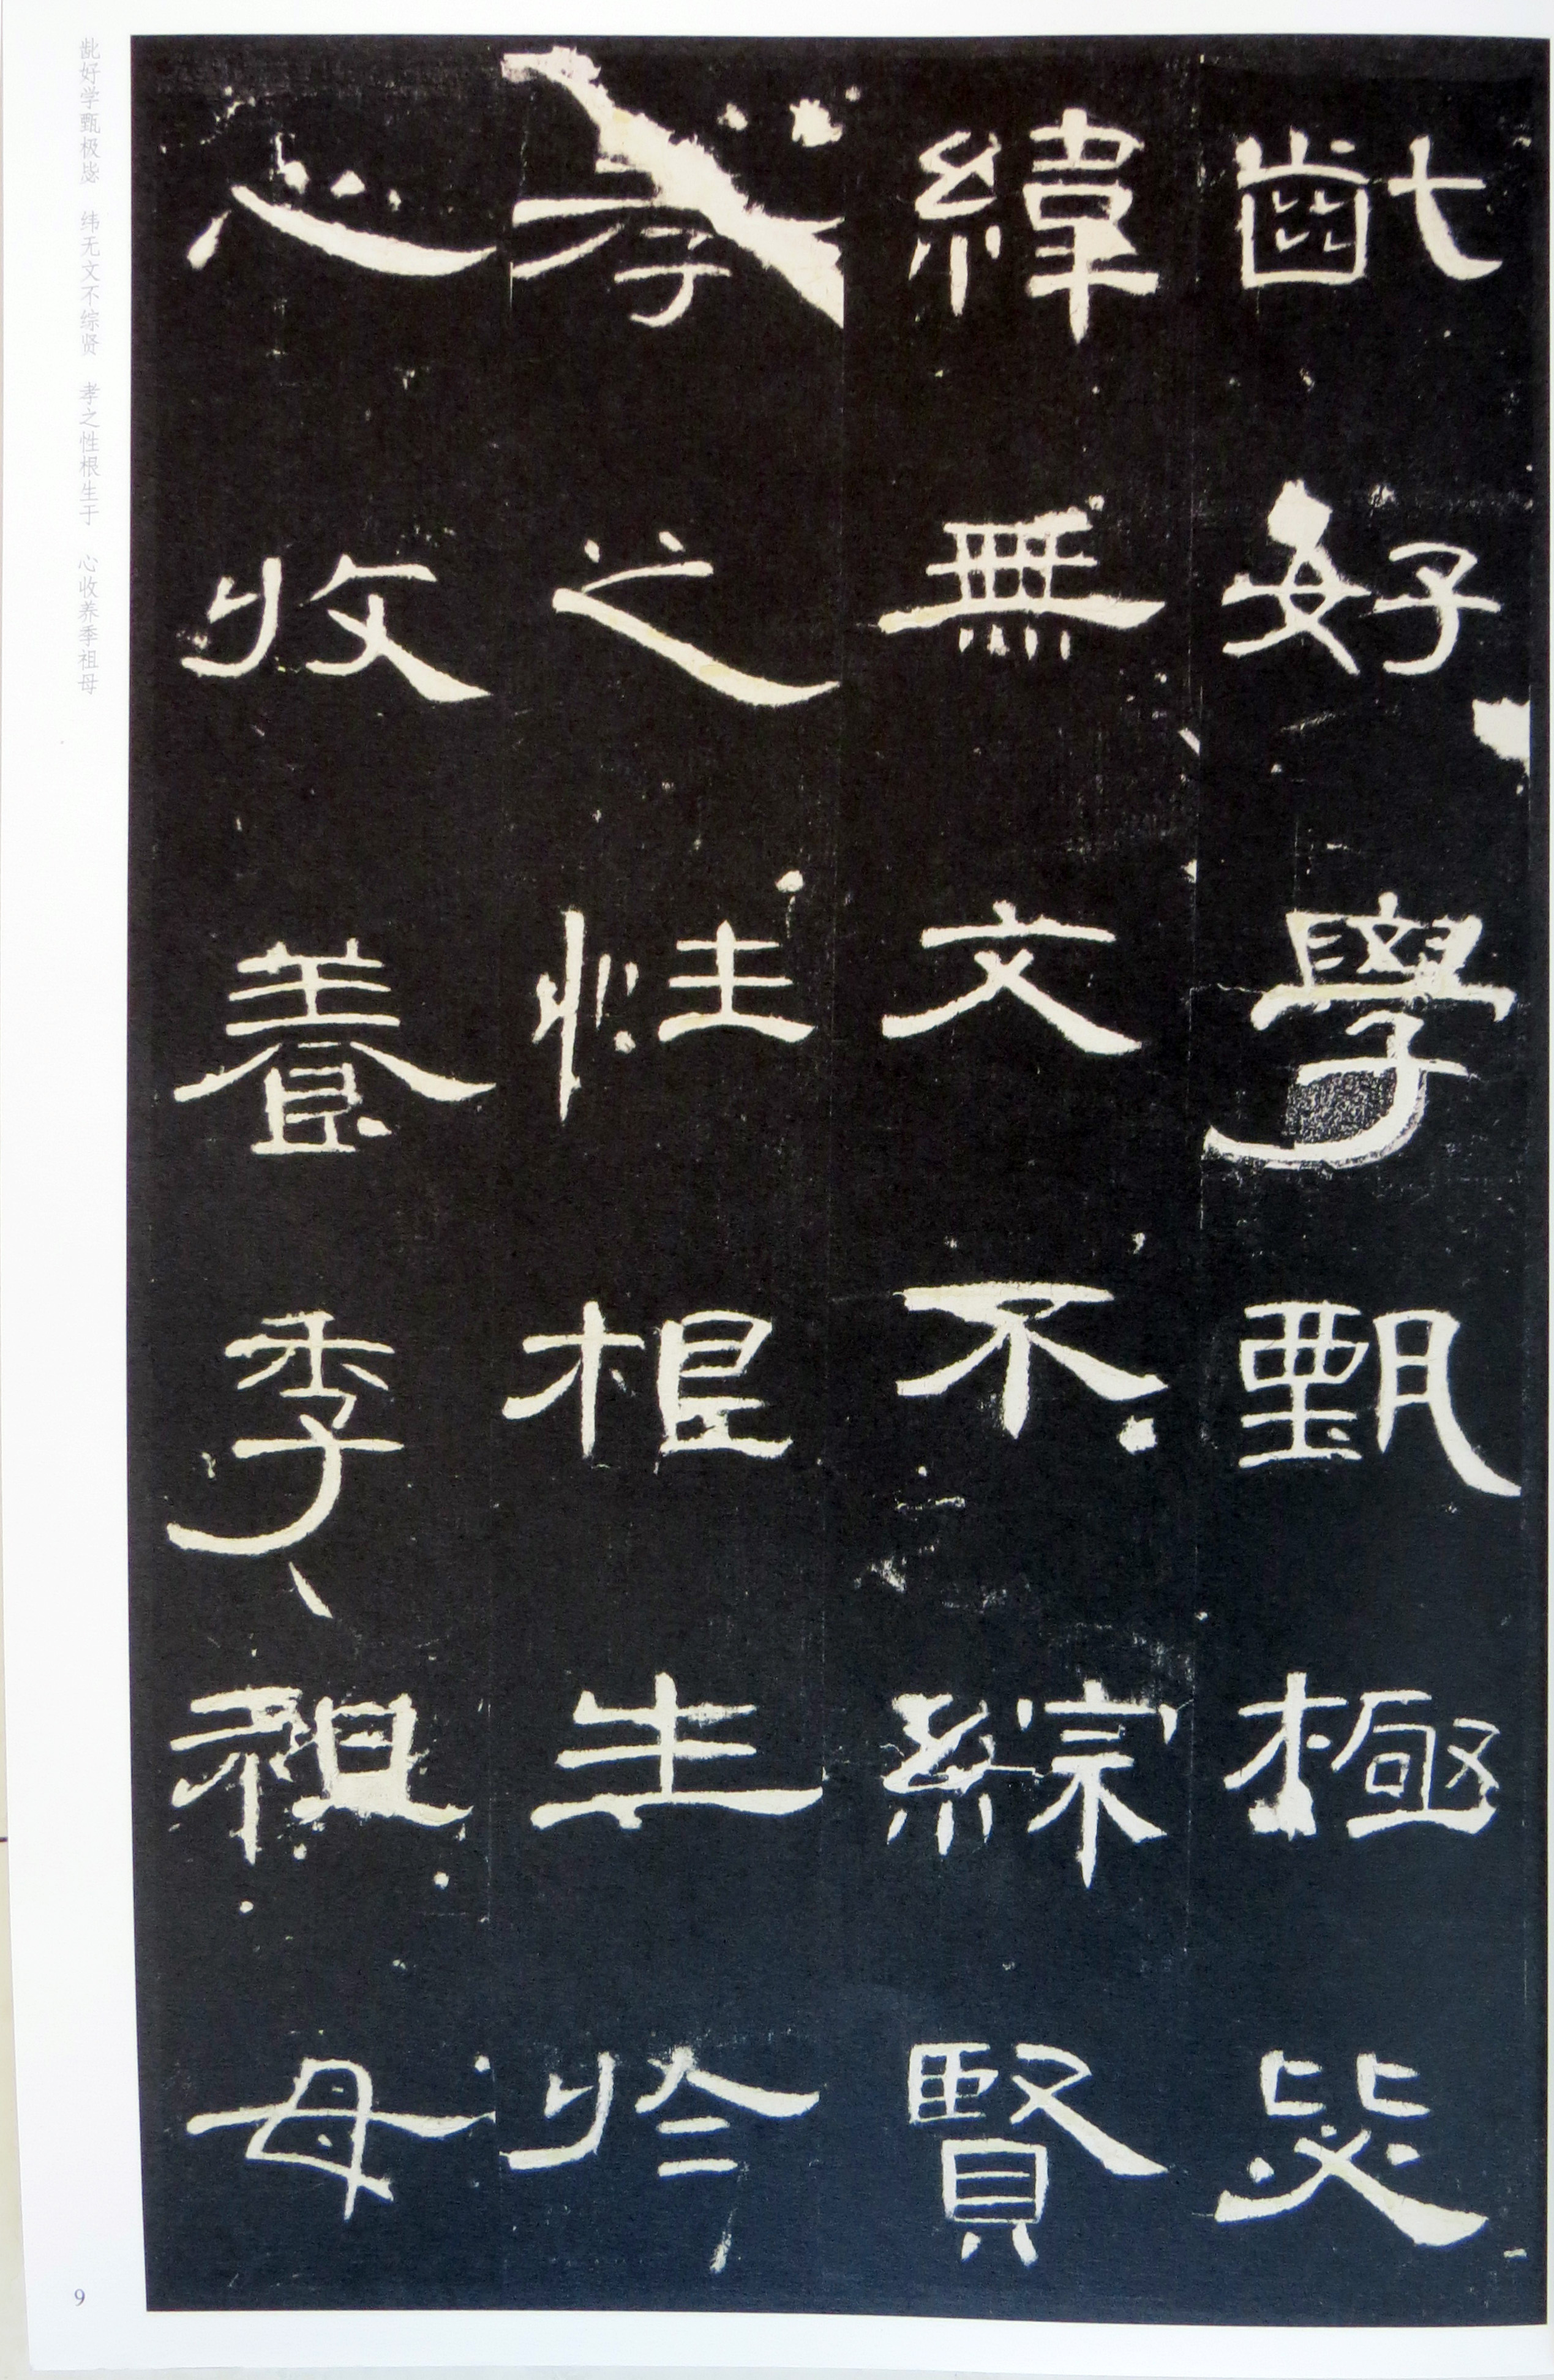 齔好學甄極毖
緯無文不綜賢
孝之性根生於
心收養季祖母
龀好学甄极毖 纬无文不综贤 孝之性根生于 心收养季祖母
9